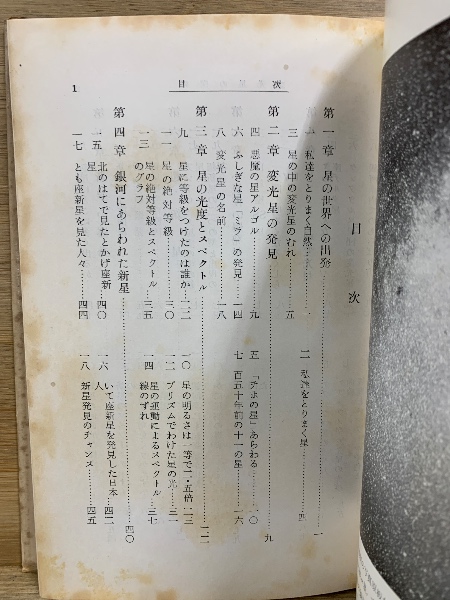 目 次
1
目 次
第一章 星の世界への出発……一
一 私達をとりまく自然……一
二 私達をとりまく星……四
三 星の中の変光星のむれ……五
第二章 変光星の発見……九
四 悪魔の星アルゴル……九
五 「チョの星」あらわる……一〇
六 ふしぎな星「ミラ」の発見……一四
七 百五十年前の十一の星……一六
八 変光星の名前……一八
第三章 星の光度とスペクトル……二二
九 星に等級をつけたのは誰か……二二
一〇 星の明るさは一等で二・五倍……二三
一一 星の絶対等級……三〇
一二 プリズムでわけた星の光……三二
一三 星の絶対等級とスペクトル
のグラフ……三五
一四 星の運動によるスペクトル
線のずれ……三七
第四章 銀河にあらわれた新星……四〇
一五 北のはてで見たとかげ座新
星……四〇
一六 いて座新星を発見した日本
人……四二
一七 とも座新星を見た人々……四四
一八 新星発見のチャンス……四五